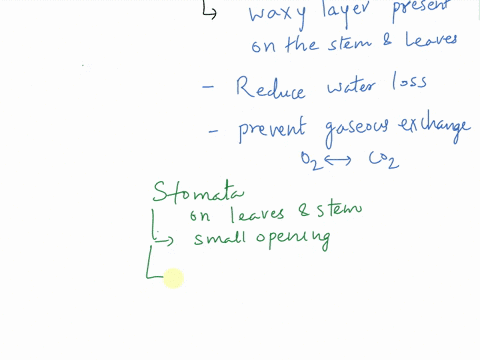 ↳ waxy layer present
on the stem & leaves
- Reduce water loss
- prevent gaseous exchange
O₂ ↔ CO₂
Stomata
on leaves & stem
→ small opening